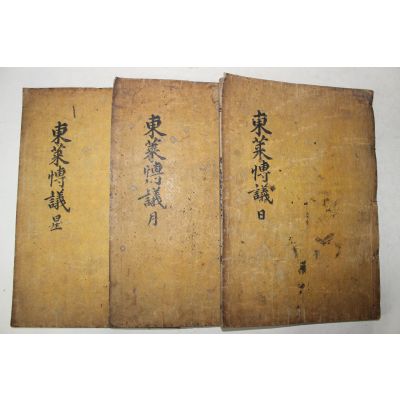 東萊慱議 日
東萊慱議 月
東萊慱議 星